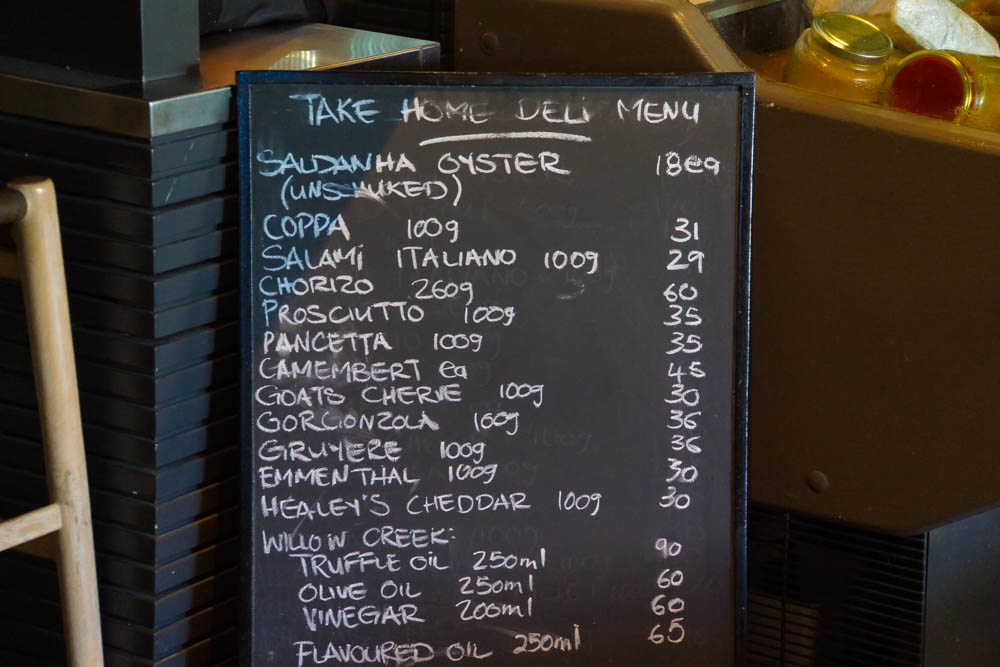 TAKE HOME DELI MENU
SALDANHA OYSTER 18ea
(UNSHUKED)
COPPA 100g 31
SALAMI ITALIANO 100g 29
CHORIZO 260g 60
PROSCIUTTO 100g 35
PANCETTA 100g 35
CAMEMBERT ea 45
GOATS CHERVE 100g 30
GORGONZOLA 100g 36
GRUYERE 100g 36
EMMENTHAL 100g 30
HEALEY'S CHEDDAR 100g 30
WILLOW CREEK:
TRUFFLE OIL 250ml 90
OLIVE OIL 250ml 60
VINEGAR 200ml 60
FLAVOURED OIL 250ml 65